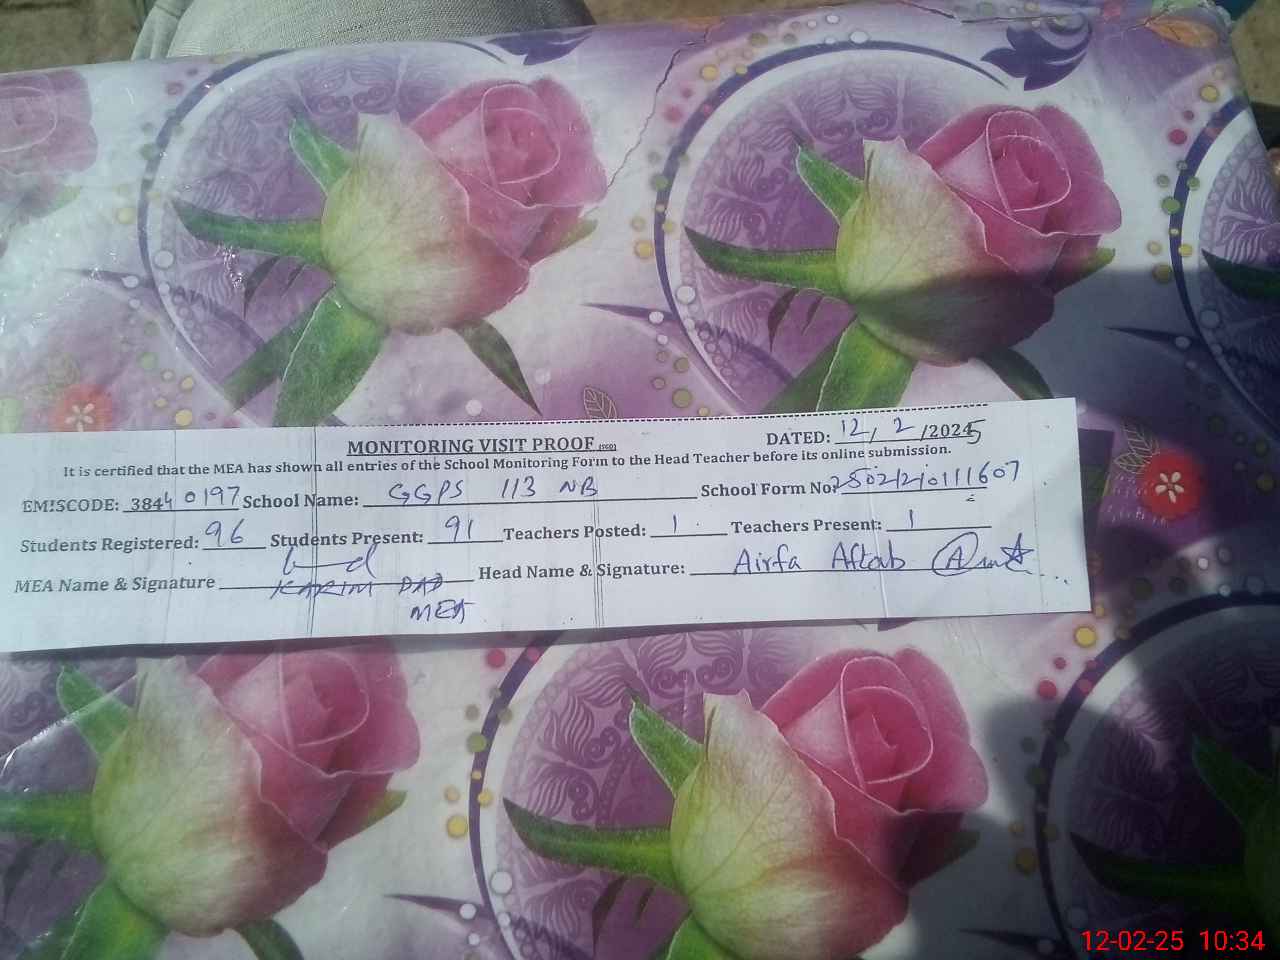 MONITORING VISIT PROOF DATED: 12/ 2 /2025
It is certified that the MEA has shown all entries of the School Monitoring Form to the Head Teacher before its online submission.
EMISCODE: 38440197 School Name: GGPS 113 NB School Form No:
Students Registered: 96 Students Present: 91 Teachers Posted: 1 Teachers Present: 1
MEA Name & Signature KARIM DAD Head Name & Signature: Airfa Aftab
MEA
12-02-25 10:34